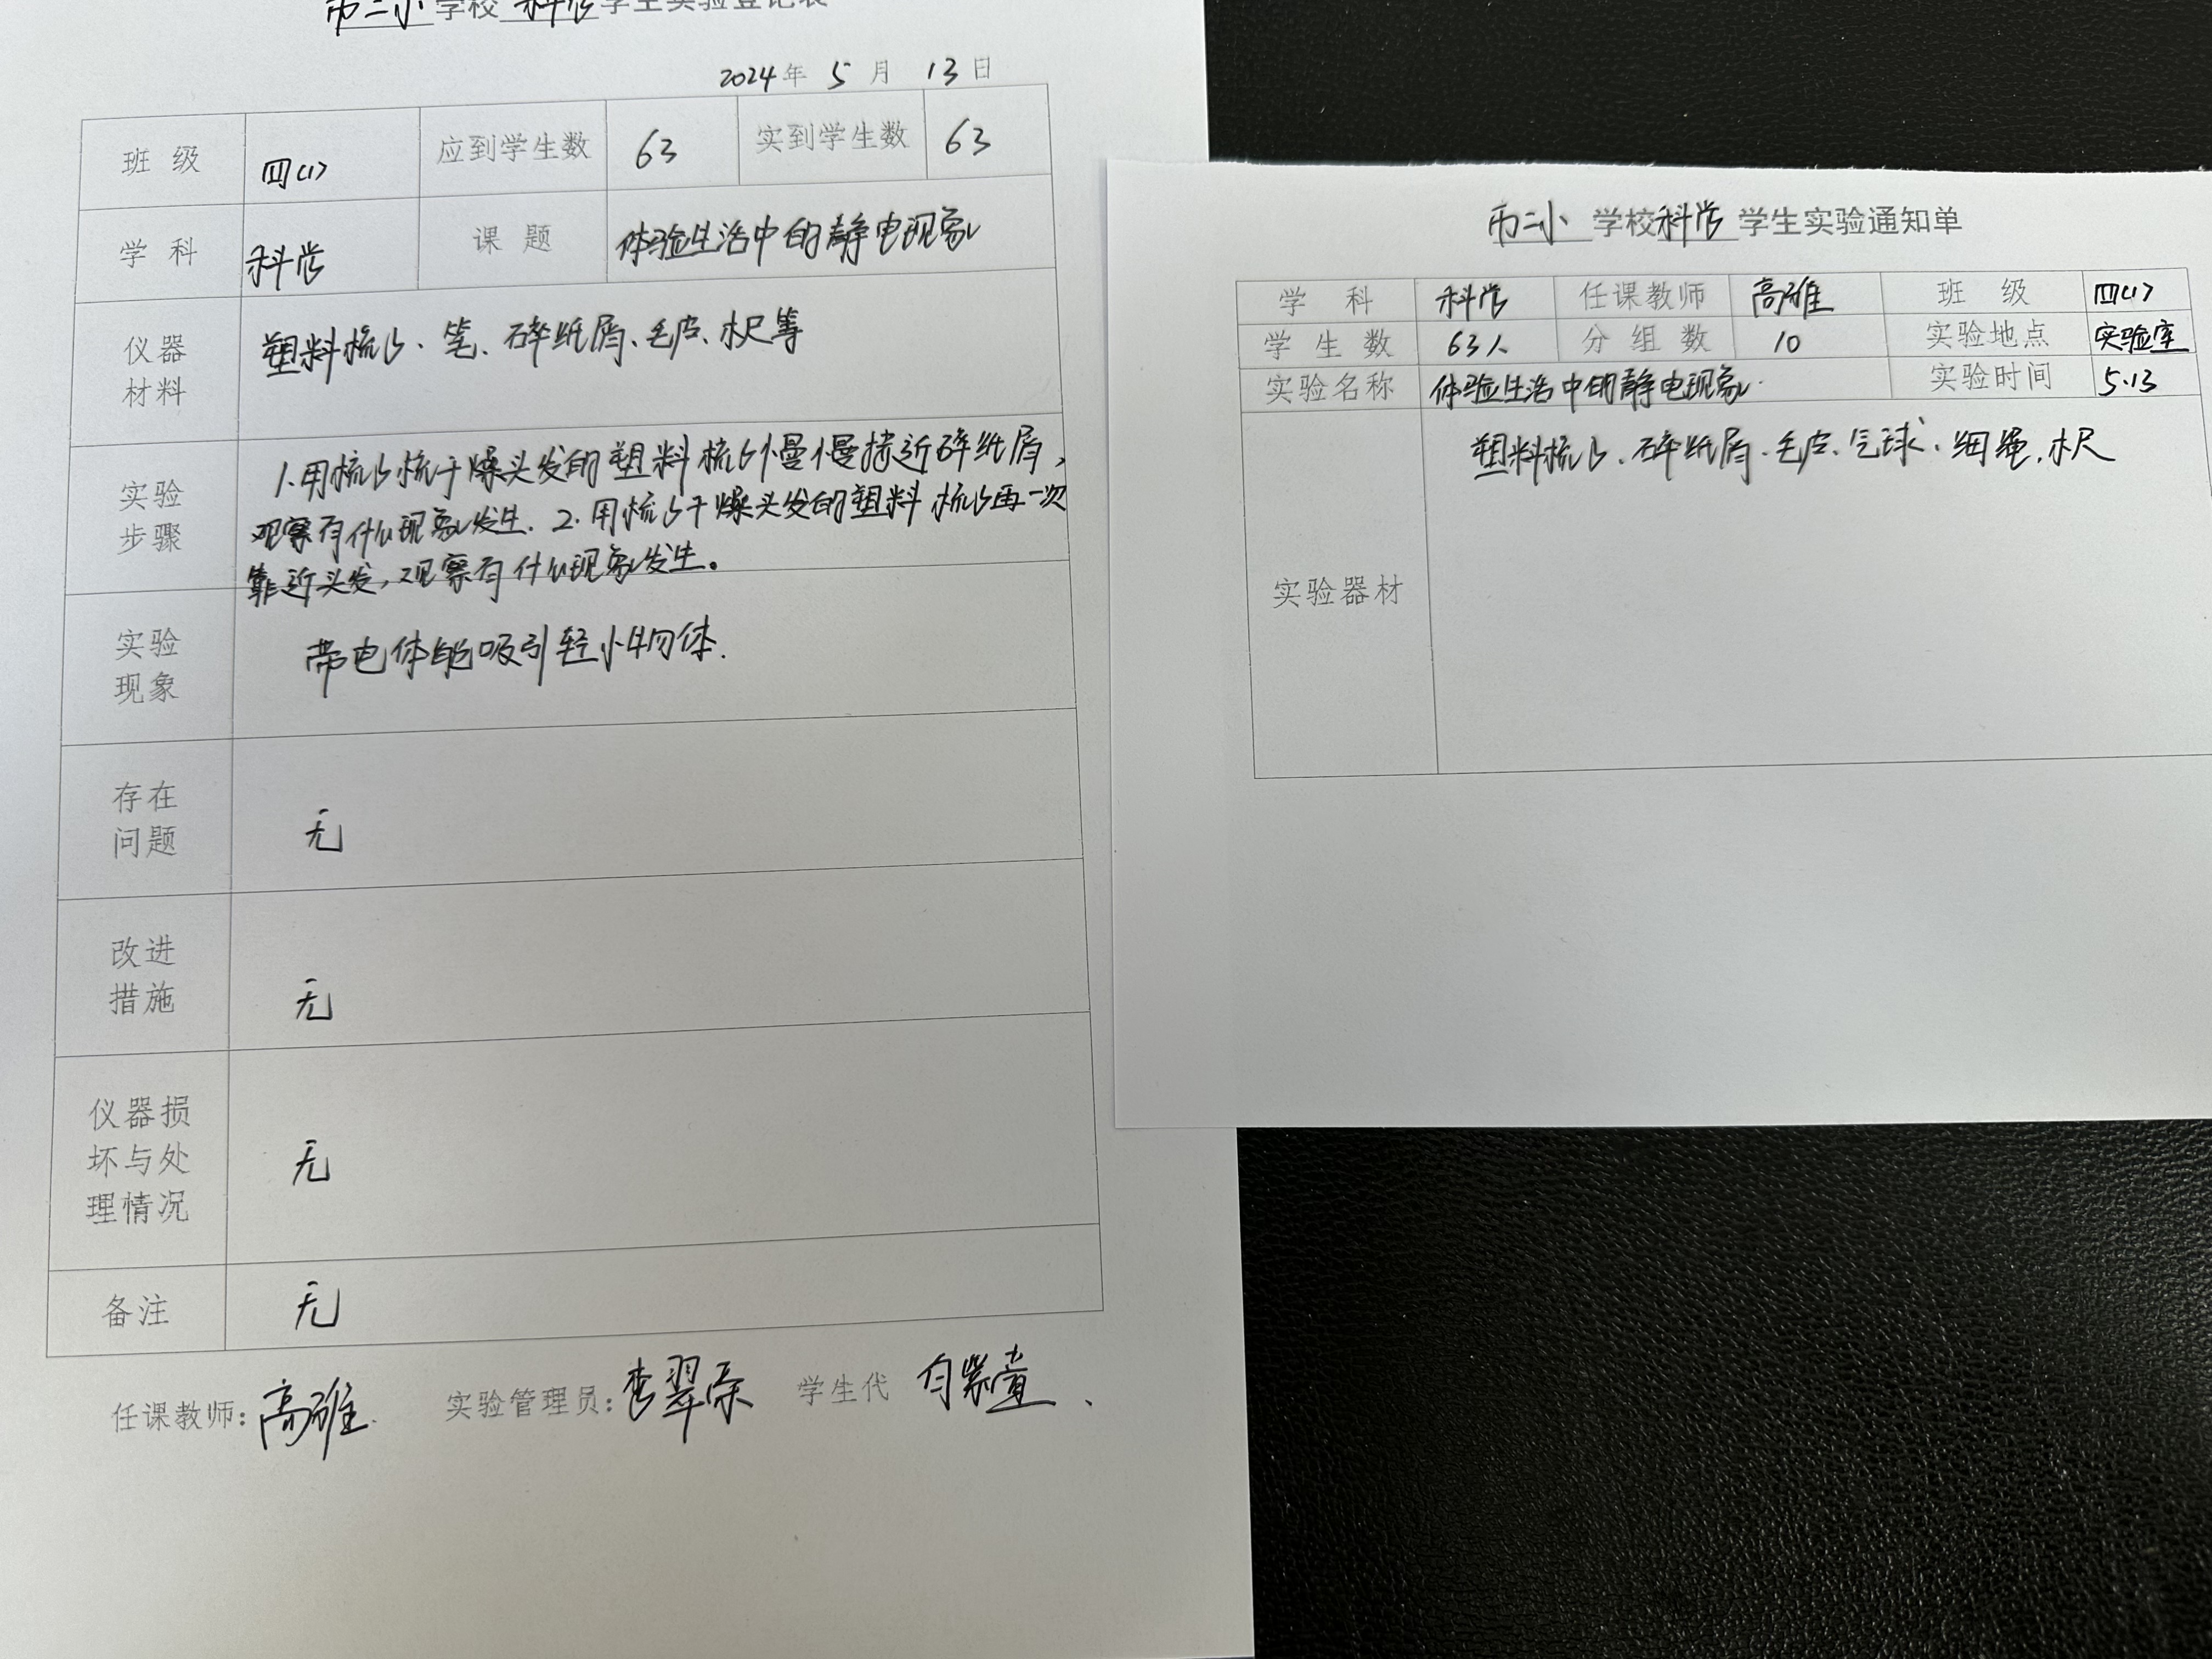 市二小 学校 科学 学生实验登记表
2024年 5 月 13 日
班 级 四(1) 应到学生数 63 实到学生数 63
学 科 科学 课 题 体验生活中的静电现象
仪器
材料
塑料梳子、笔、碎纸屑、毛皮、木尺等
实验
步骤
1.用梳子梳干燥头发的塑料梳子慢慢接近碎纸屑,
观察有什么现象发生. 2.用梳子干燥头发的塑料梳子再一次
靠近头发,观察有什么现象发生。
实验
现象
带电体能吸引轻小物体.
存在
问题
无
改进
措施
无
仪器损
坏与处
理情况
无
备注 无
任课教师: 高雄. 实验管理员: 李翠 学生代
市二小 学校 科学 学生实验通知单
学 科 科学 任课教师 高雄 班 级 四(1)
学 生 数 63人 分 组 数 10 实验地点 实验室
实验名称 体验生活中的静电现象. 实验时间 5.13
实验器材
塑料梳子、碎纸屑、毛皮、气球、细绳、木尺